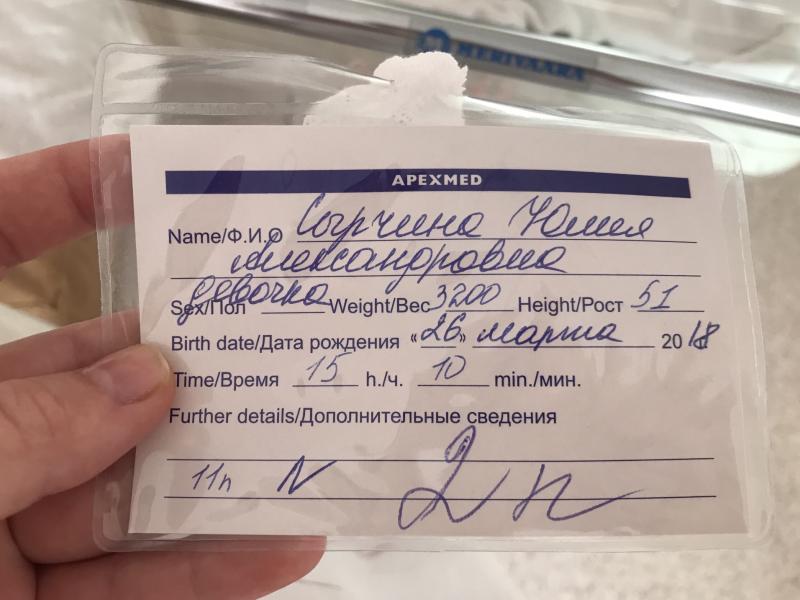 MERIVAARA
APEXMED
Name/Ф.И.О Сырчина Юлия
Александровна
Sex/Пол девочка Weight/Вес 3200 Height/Рост 51
Birth date/Дата рождения «26» марта 2018
Time/Время 15 h./ч. 10 min./мин.
Further details/Дополнительные сведения
11п N 2 п